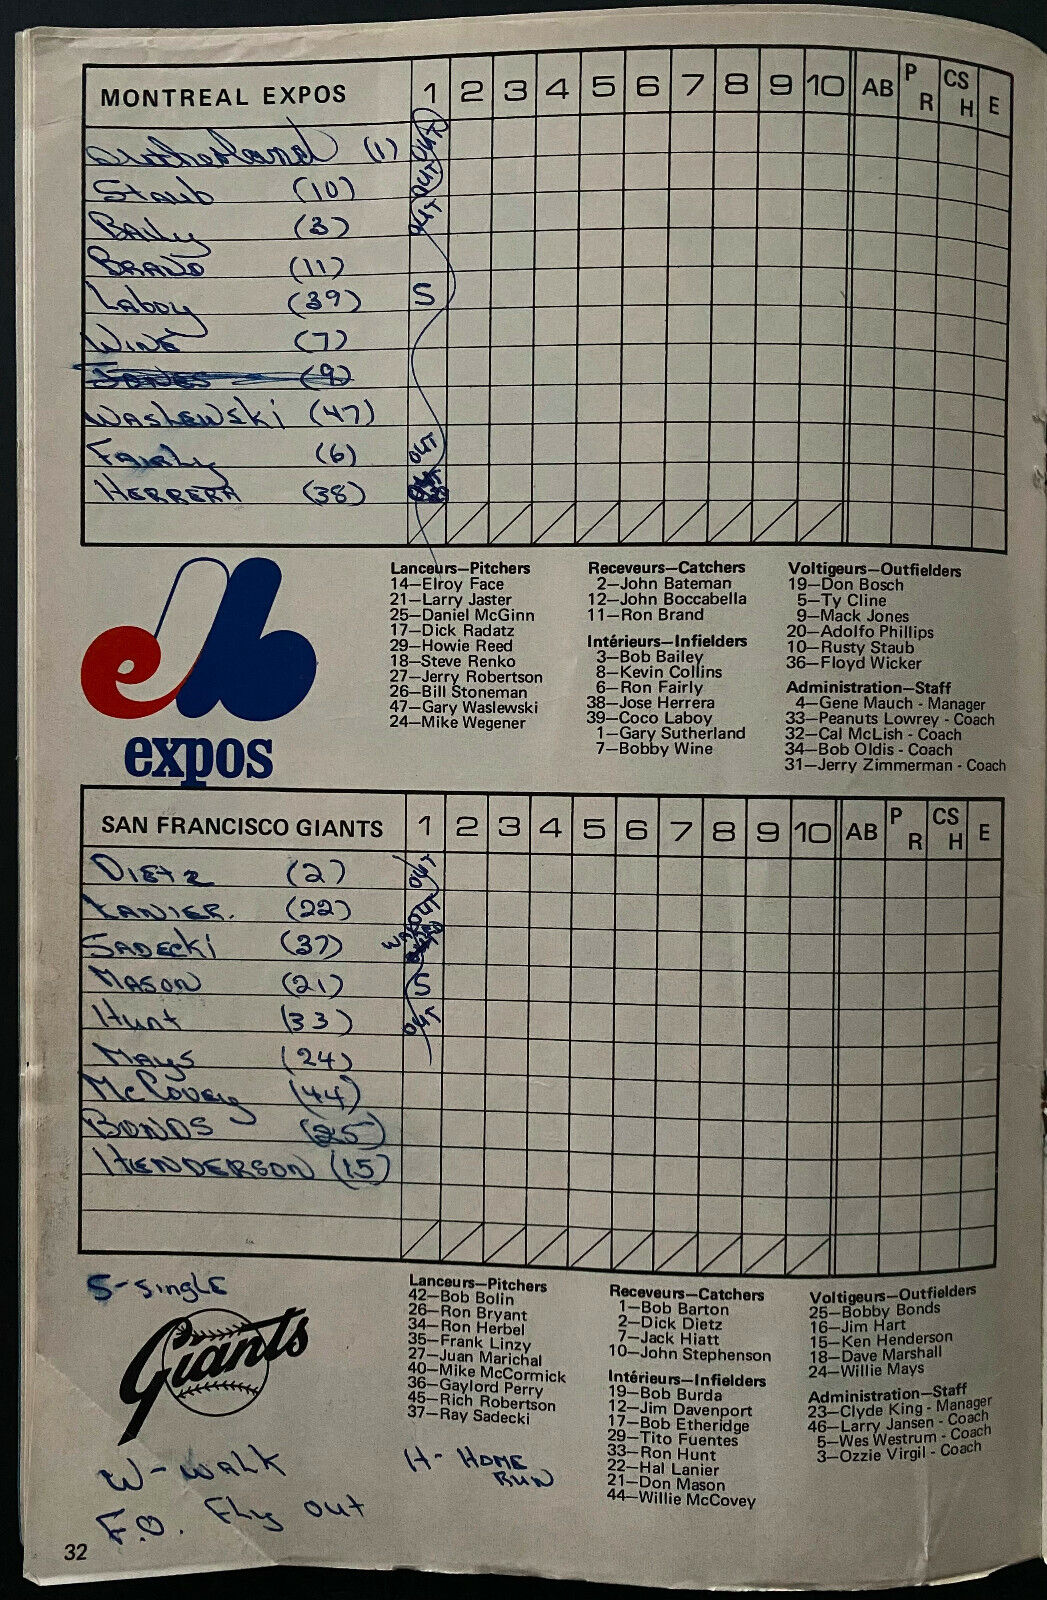 MONTREAL EXPOS 1 2 3 4 5 6 7 8 9 10 AB P R CS H E
Sutherland (1) OUT
Staub (10) OUT
Baily (3) OUT
BRAND (11)
Laboy (39) S
WINE (7)
JONES (9)
WASLEWSKi (47)
FAIRLY (6) OUT
HERRERA (38) OUT
expos
Lanceurs—Pitchers
14—Elroy Face
21—Larry Jaster
25—Daniel McGinn
17—Dick Radatz
29—Howie Reed
18—Steve Renko
27—Jerry Robertson
26—Bill Stoneman
47—Gary Waslewski
24—Mike Wegener
Receveurs—Catchers
2—John Bateman
12—John Boccabella
11—Ron Brand
Intérieurs—Infielders
3—Bob Bailey
8—Kevin Collins
6—Ron Fairly
38—Jose Herrera
39—Coco Laboy
1—Gary Sutherland
7—Bobby Wine
Voltigeurs—Outfielders
19—Don Bosch
5—Ty Cline
9—Mack Jones
20—Adolfo Phillips
10—Rusty Staub
36—Floyd Wicker
Administration—Staff
4—Gene Mauch - Manager
33—Peanuts Lowrey - Coach
32—Cal McLish - Coach
34—Bob Oldis - Coach
31—Jerry Zimmerman - Coach
SAN FRANCISCO GIANTS 1 2 3 4 5 6 7 8 9 10 AB P R CS H E
DIETZ (2) OUT
LANIER. (22) OUT
SADECKi (37)
MASON (21) S
Hunt (33) OUT
MAYS (24)
McCovey (44)
BONDS (25)
HENDERSON (15)
S-SinglE
Giants
W-WALK
F.O. Fly out
H- HOME
RUN
Lanceurs—Pitchers
42—Bob Bolin
26—Ron Bryant
34—Ron Herbel
35—Frank Linzy
27—Juan Marichal
40—Mike McCormick
36—Gaylord Perry
45—Rich Robertson
37—Ray Sadecki
Receveurs—Catchers
1—Bob Barton
2—Dick Dietz
7—Jack Hiatt
10—John Stephenson
Intérieurs—Infielders
19—Bob Burda
12—Jim Davenport
17—Bob Etheridge
29—Tito Fuentes
33—Ron Hunt
22—Hal Lanier
21—Don Mason
44—Willie McCovey
Voltigeurs—Outfielders
25—Bobby Bonds
16—Jim Hart
15—Ken Henderson
18—Dave Marshall
24—Willie Mays
Administration—Staff
23—Clyde King - Manager
46—Larry Jansen - Coach
5—Wes Westrum - Coach
3—Ozzie Virgil - Coach
32